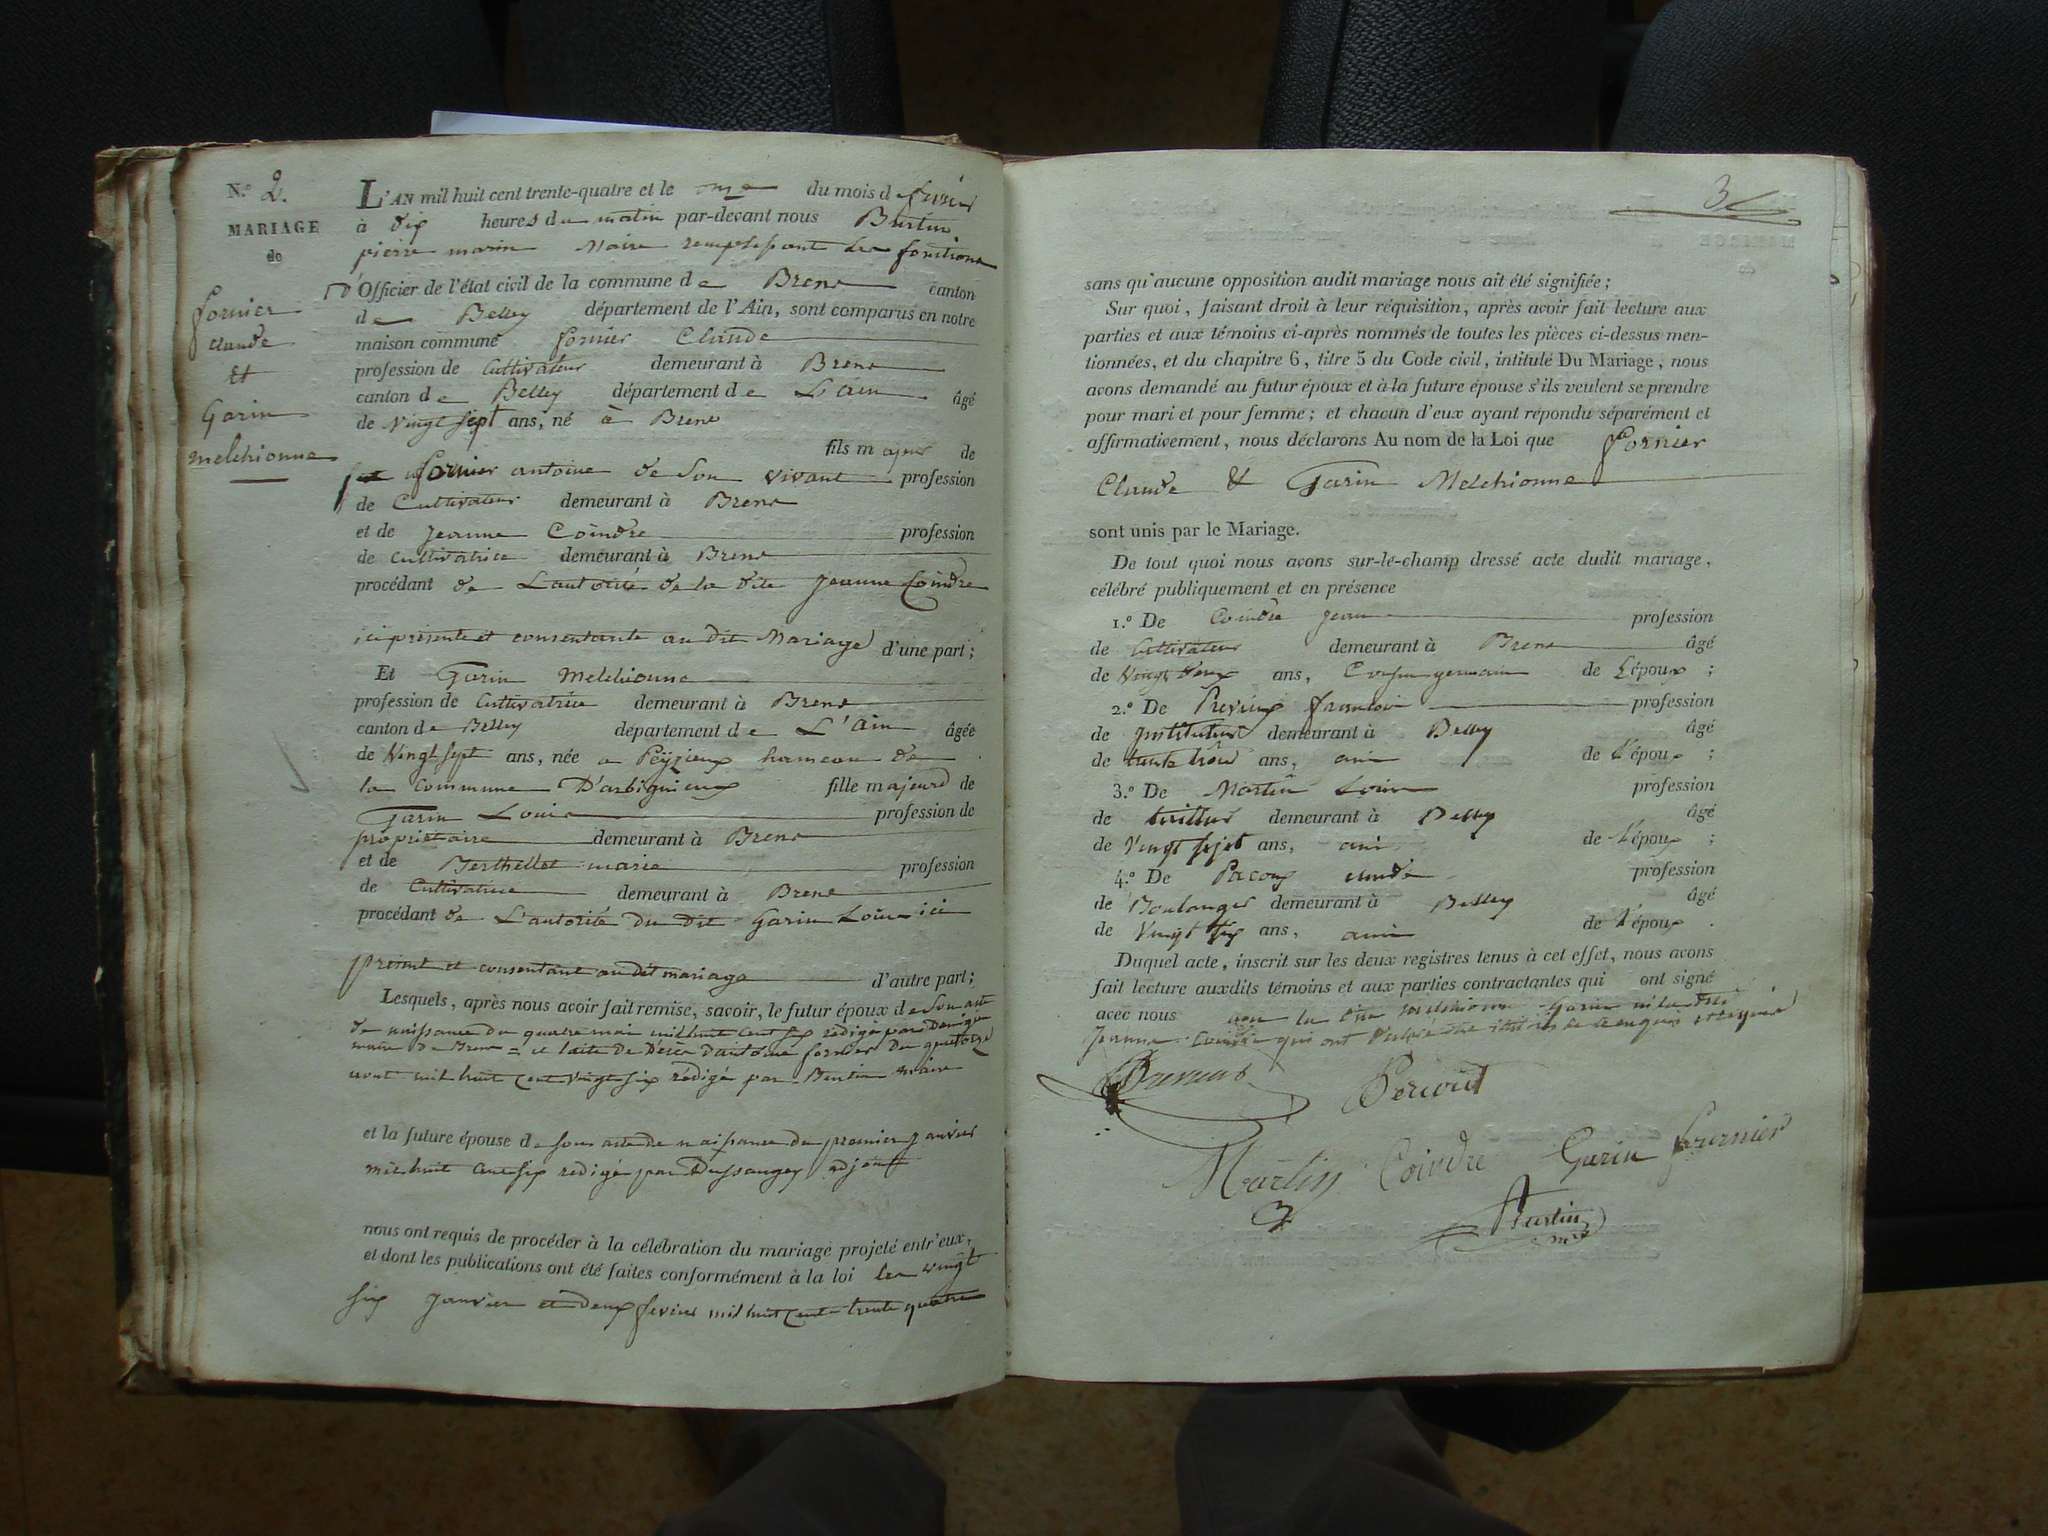 N.º 2.
MARIAGE
de
fornier
claude
et
Garin
melchionne
L'AN mil huit cent trente-quatre et le onze du mois de fevrier
à dix heures du matin par-devant nous Burtin
pierre marin Maire remplissant les fonctions
d'Officier de l'état civil de la commune de Brens canton
de Belley département de l'Ain, sont comparus en notre
maison commune fornier Claude
profession de Cultivateur demeurant à Brens
canton de Belley département de L'ain âgé
de Vingt sept ans, né à Brens
fils majeur de
feu fornier antoine de Son vivant profession
de Cultivateur demeurant à Brens
et de Jeanne Coindre profession
de Cultivatrice demeurant à Brens
procédant de L'autorité de la dite Jeanne Coindre
ici présente et consentante au dit Mariage d'une part;
Et Garin Melchionne
profession de Cultivatrice demeurant à Brens
canton de Belley département de L'Ain âgée
de Vingt sept ans, née a Peyzieux hameau de
la Commune D'arbignieux fille majeure de
Garin Louis profession de
propriétaire demeurant à Brens
et de Berthellet marie profession
de Cultivatrice demeurant à Brens
procédant de L'autorité du dit Garin Louis ici
présent et consentant au dit mariage d'autre part;
Lesquels, après nous avoir fait remise, savoir, le futur époux de Son acte
de naissance du quatre mai mil huit cent six rédigé par
maire de Brens = et l'acte de Décès d'antoine fornier du quatorze
aout mil huit cent vingt six rédigé par Burtin maire
et la future épouse de Son acte de naissance du premier janvier
mil huit cent six redigé par Dussauges adjoint
nous ont requis de procéder à la célébration du mariage projeté entr'eux,
et dont les publications ont été faites conformément à la loi les vingt
six Janvier et deux fevrier mil huit cent trente quatre
3
sans qu'aucune opposition audit mariage nous ait été signifiée;
Sur quoi, faisant droit à leur réquisition, après avoir fait lecture aux
parties et aux témoins ci-après nommés de toutes les pièces ci-dessus men-
tionnées, et du chapitre 6, titre 5 du Code civil, intitulé Du Mariage, nous
avons demandé au futur époux et à la future épouse s'ils veulent se prendre
pour mari et pour femme; et chacun d'eux ayant répondu séparément et
affirmativement, nous déclarons Au nom de la Loi que fornier
Claude & Garin Melchionne
sont unis par le Mariage.
De tout quoi nous avons sur-le-champ dressé acte dudit mariage,
célébré publiquement et en présence
1.º De Coindre Jean profession
de Cultivateur demeurant à Brens âgé
de Vingt deux ans, Cousin germain de L'époux;
2.º De françois profession
de instituteur demeurant à Belley âgé
de trente trois ans, ami de L'époux;
3.º De Martin Louis profession
de tailleur demeurant à Belley âgé
de Vingt sept ans, ami de L'époux;
4.º De claude profession
de Boulanger demeurant à Belley âgé
de Vingt six ans, ami de L'époux.
Duquel acte, inscrit sur les deux registres tenus à cet effet, nous avons
fait lecture auxdits témoins et aux parties contractantes qui ont signé
avec nous non la dite melchionne Garin ni la dite
Jeanne Coindre qui ont de ce enquis et requis
Martin Coindre Garin fournier
Burtin